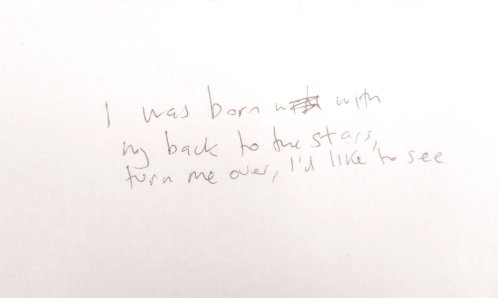 I was born with
my back to the stars,
turn me over, I'd like to see